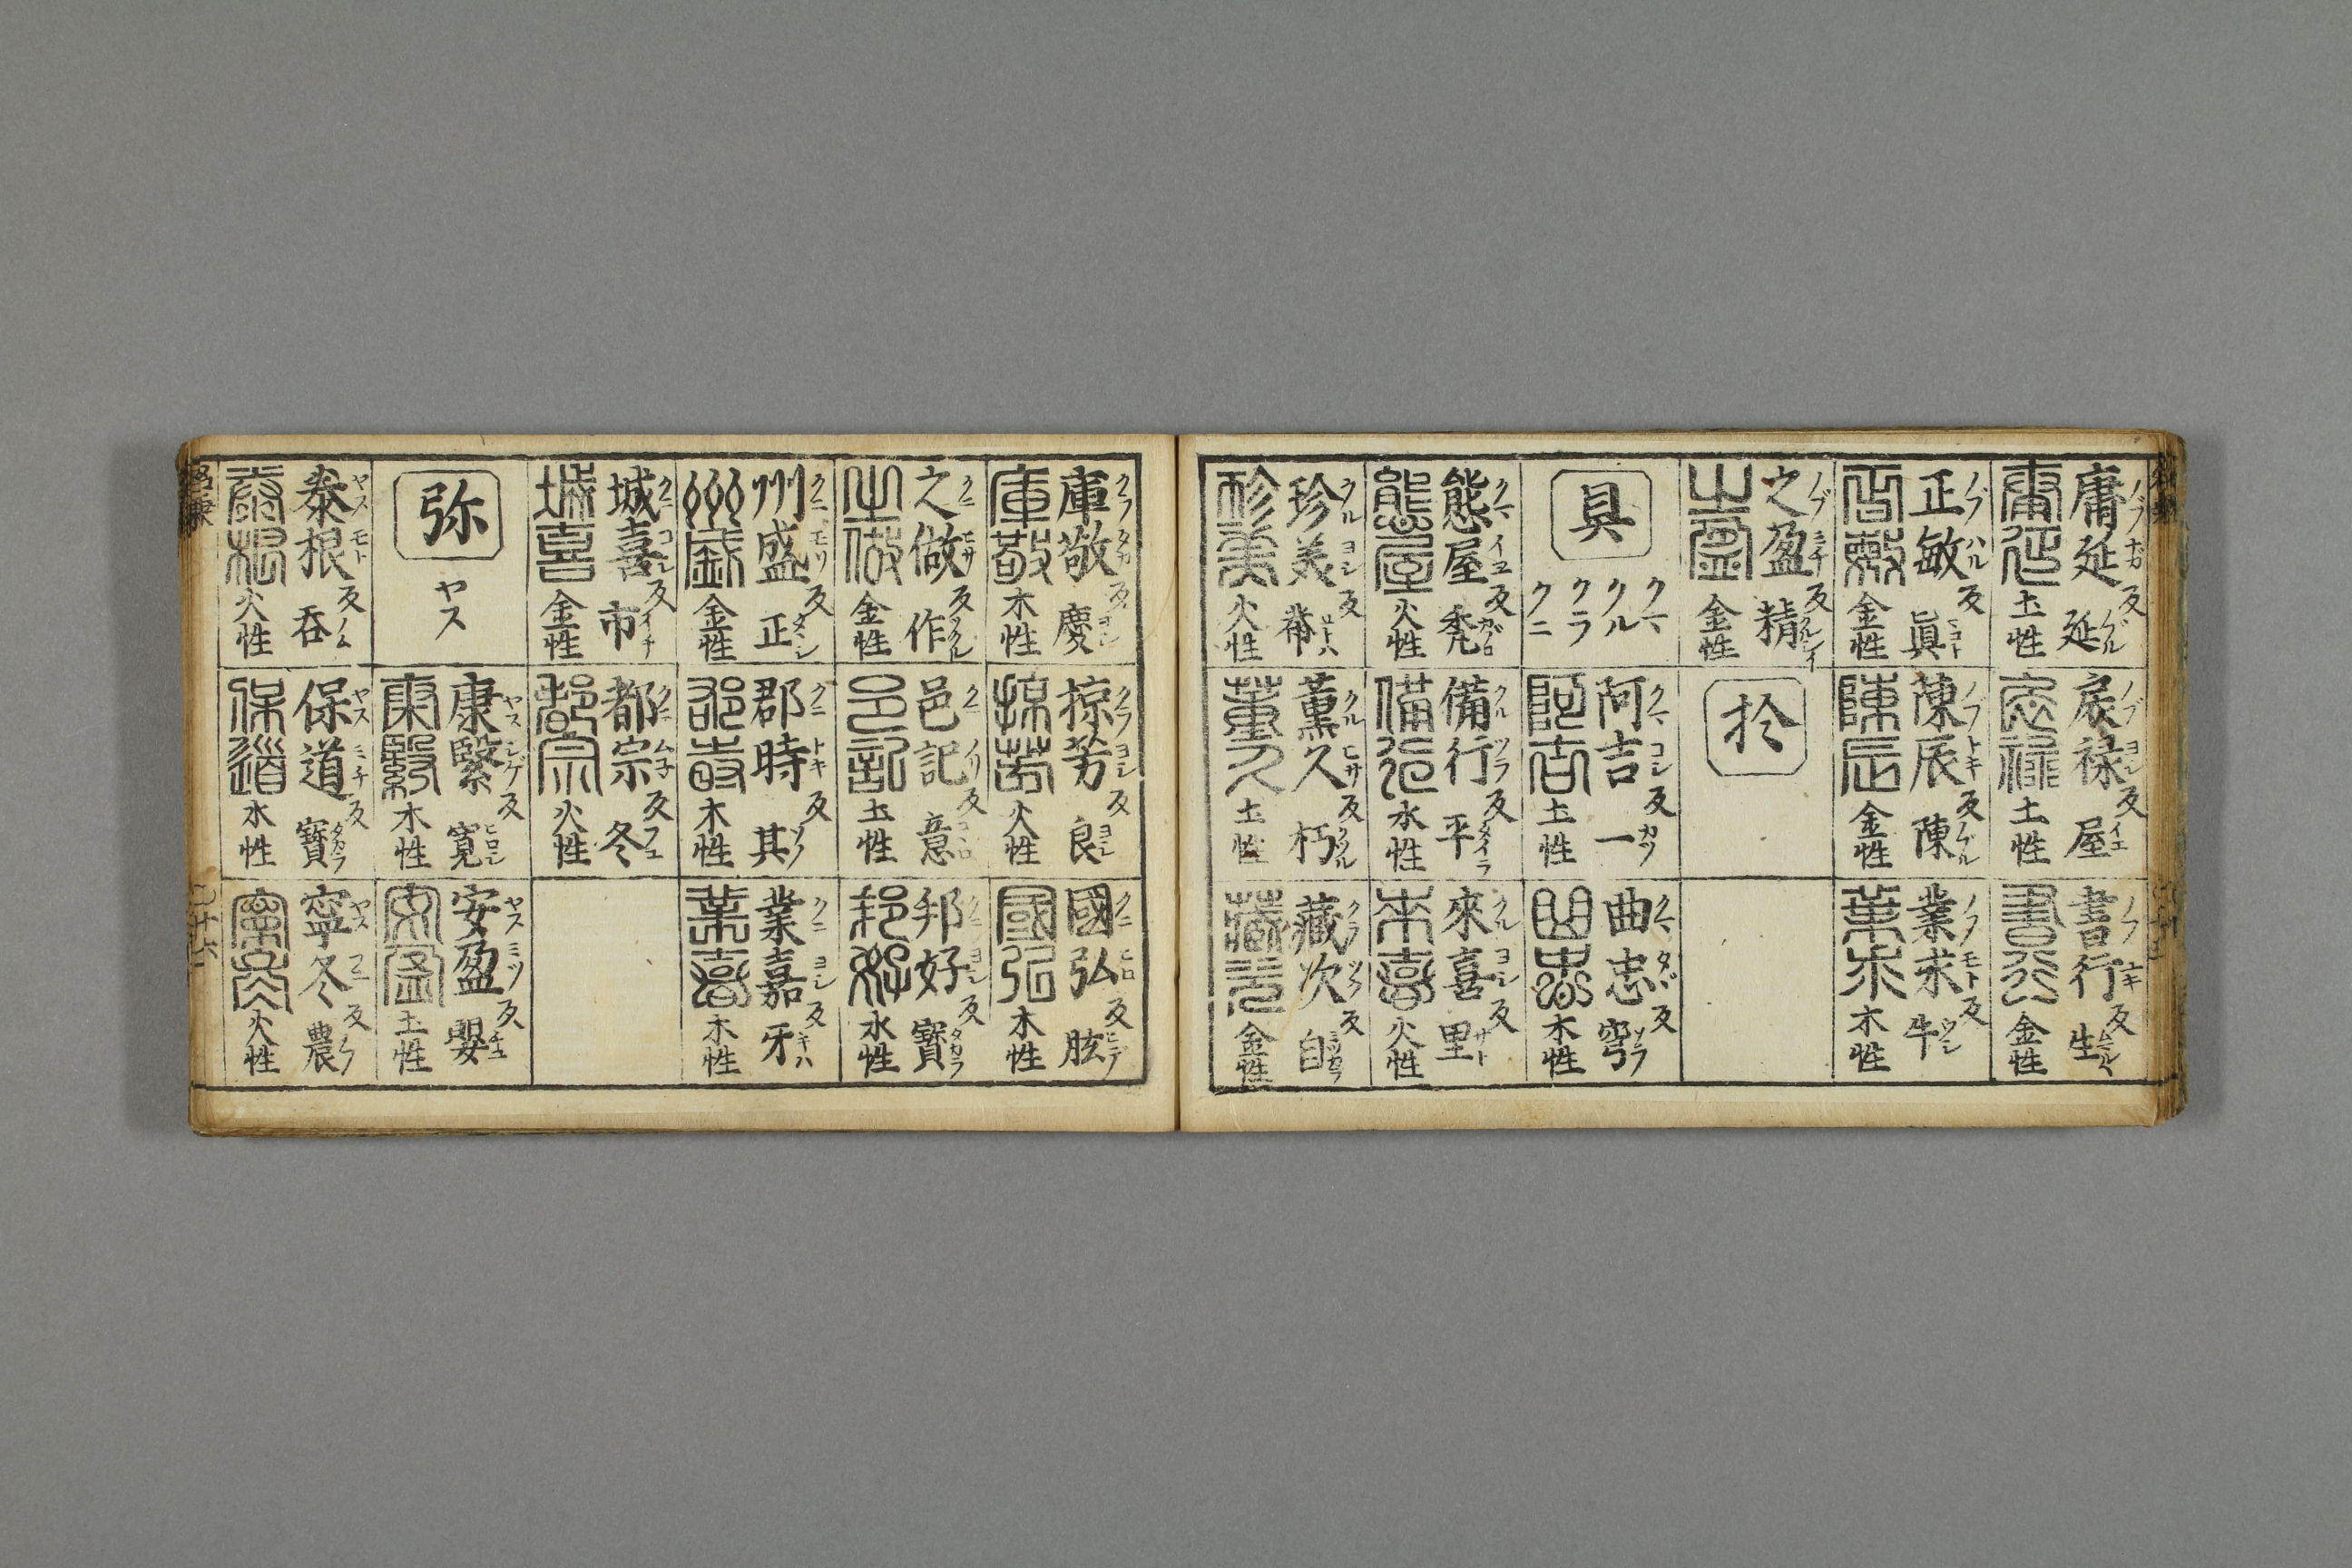 庸延 ノブナガ 反 延 ノブル
土性
戻禄 ノブヨシ 反 屋 イエ
土性
書行 ノブユキ 反 生
金性
正敏 ノブハル 反 眞 マコト
金性
陳辰 ノブトキ 反 陳 ノブル
金性
業求 ノブモト 反 牛 ウシ
木性
之盈 ノブミチ 反 精 クハシイ
金性
於
具
クマ
クル
クラ
クニ
阿吉 クマヨシ 反 一 カツ
土性
曲忠 クマタヾ 反 穹 ソラ
木性
熊屋 クマイヱ 反 禿 カブロ
火性
備行 クルツラ 反 平 タイラ
水性
來喜 クルヨシ 反 里 サト
火性
珍美 クルヨシ 反
火性
薫久 クルヒサ 反 朽 クツル
土性
藏次 クラツグ 反 自 ミツカラ
金性
庫敬 クラタカ 反 慶 ヨシ
木性
掠芳 クラヨシ 反 良 ヨシ
火性
國弘 クニヒロ 反 肱 ヒヂ
木性
之做 クニヒサ 反 作 ツクル
金性
邑記 クニノリ 反 意 コヽロ
土性
邦好 クニヨシ 反 寳 タカラ
水性
州盛 クニモリ 反 正 タヾシ
金性
郡時 クニトキ 反 其 ソノ
木性
業嘉 クニヨシ 反 牙 キハ
木性
城喜 クニヨシ 反 市 イチ
金性
都宗 クニムネ 反 冬 フユ
火性
弥
ヤス
康繄 ヤスシゲ 反 寛 ヒロシ
木性
安盈 ヤスミツ 反 嬰
土性
泰根 ヤスモト 反 呑 ノム
火性
保道 ヤスミチ 反 寳 タカラ
水性
寧冬 ヤスフユ 反 農
火性
二十六